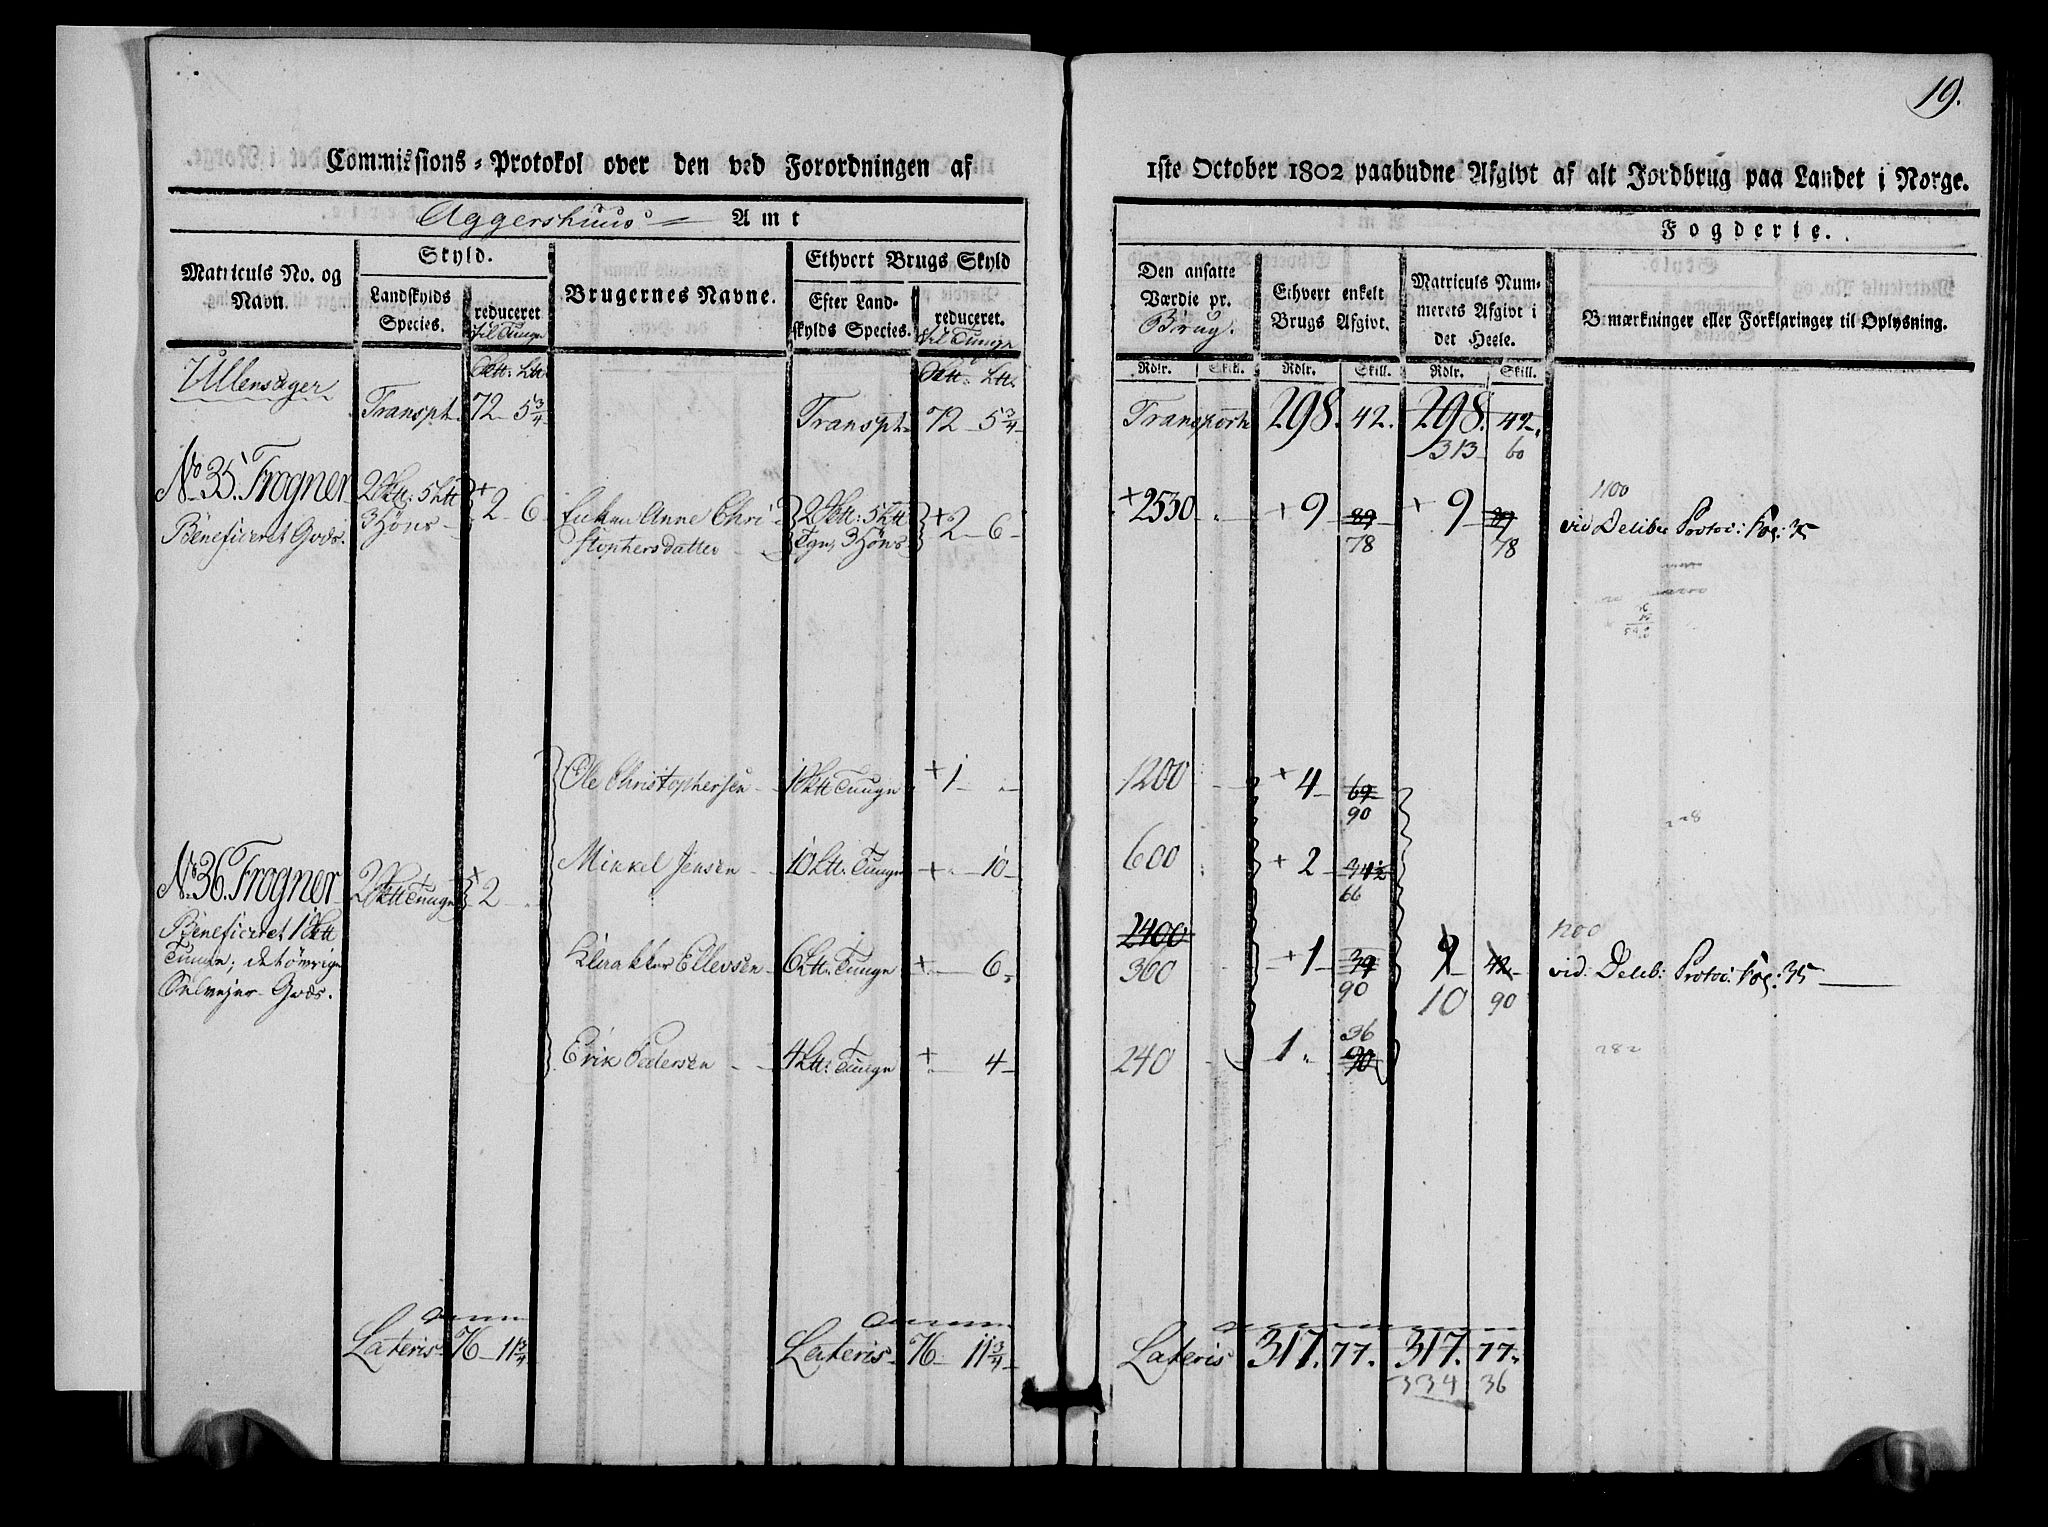 19.
Commissions-Protokol over den ved Forordningen af
1ste October 1802 paabudne Afgivt af alt Jordbrug paa Landet i Norge.
Aggershuus Amt
Fogderie.
Matriculs No. og Navn.
Skyld.
Landskylds Species.
reduceret til Tunge
Brugernes Navne.
Ethvert Brugs Skyld
Efter Landskylds Species.
reduceret. til Tunge
Den ansatte Værdie pr. Brug.
Ethvert enkelt Brugs Afgivt.
Matriculs Nummerets Afgivt i det Heele.
Bemærkninger eller Forklaringer til Oplysning.
Rdlr. Skill. Rdlr. Skill. Rdlr. Skill.
Ullensager
Transpt. 72 - 5 3/4 Transpt. 72 - 5 3/4 Transporth 298. 42. 298. 42.
313 60
No 35. Frogner 2 Sktt: 5 Ltt 2 - 6 Enken Anne Chri- 2 Sktt: 5 Ltt 2 - 6 2530 9 89 9 89 1100
Beneficeret Gods. 3 Høns stophersdatter Tgn, 3 Høns 78 78 vid Delibr Protoc: Fog: 35
Ole Christophersen 1 Sktt Tunge 1 1200 4 69
90
Minkel Jensen 10 Ltt. Tunge 10 600 2 44½
66
No 36. Frogner 2 Sktt Tunge 2
Beneficeret 1 Sktt 2400 1200
Tunge; det øvrige Ellevsen 6 Ltt. Tunge 6 360 1 39 9 42 vid: Delib: Protoc: Fog: 35
Selvejer Gods. 90 10 90
Erik Pedersen 4 Ltt. Tunge 4 240 1 36
282
Lateris 76 - 11 3/4 Lateris 76 11 3/4 Lateris 317. 77. 317. 77.
334 36